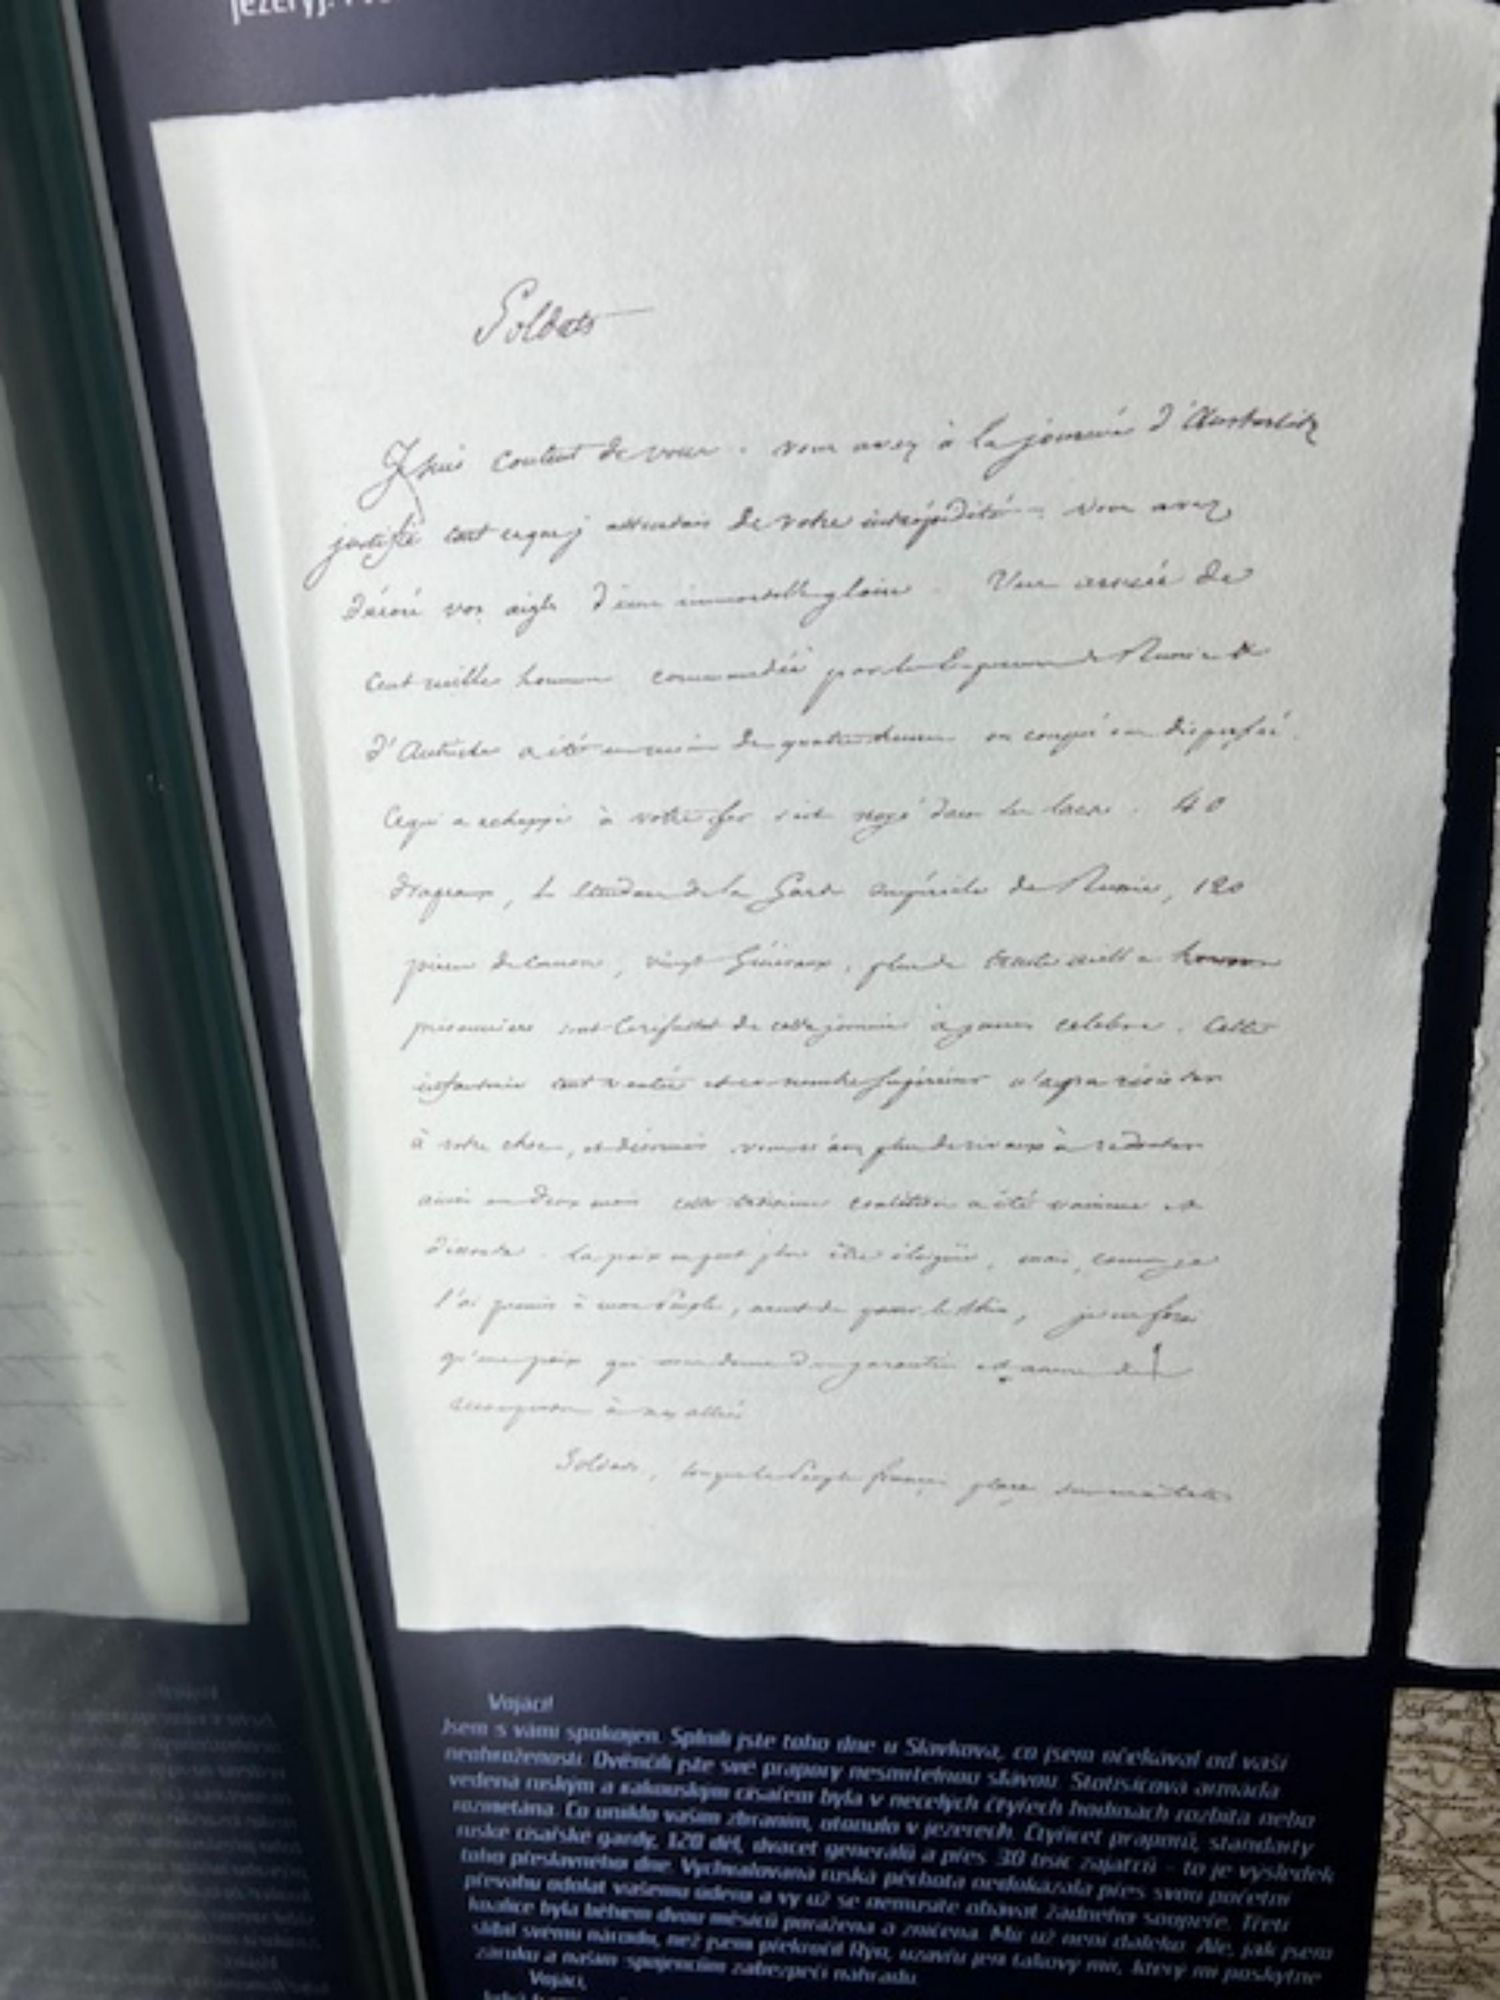 Soldats
Je suis content de vous. vous avez à la journée d'Austerlitz
justifié tout ce que j'attendais de votre intrépidité. vous avez
décoré vos aigles d'une immortelle gloire. Une armée de
cent mille hommes commandée par les Empereurs de Russie et
d'Autriche a été en moins de quatre heures ou coupée ou dispersée.
Ce qui a echappé à votre fer s'est noyé dans les lacs. 40
drapeaux, les étendards de la Garde impériale de Russie, 120
pièces de canon, vingt Généraux, plus de trente mille
prisonniers sont le résultat de cette journée à jamais celebre. Cette
infanterie tant vantée et en nombre supérieur n'a pu résister
à votre choc, et désormais vous n'avez plus de rivaux à redouter
ainsi en deux mois cette troisième coalition a été vaincue et
dissoute. La paix ne peut plus être éloignée, mais, comme je
l'ai promis à mon Peuple, avant de passer le Rhin, je ne ferai
qu'une paix qui nous donne des garanties et assure des
récompenses à nos alliés
Soldats, lorsque le Peuple français plaça sur ma tête
Vojáci!
Jsem s vámi spokojen. Splnili jste toho dne u Slavkova, co jsem očekával od vaší
neohroženosti. Ověnčili jste své prapory nesmrtelnou slávou. Stotisícová armáda
vedená ruským a rakouským císařem byla v necelých čtyřech hodinách rozbita nebo
rozmetána. Co uniklo vašim zbraním, utonulo v jezerech. Čtyřicet praporů, standarty
ruské císařské gardy, 120 děl, dvacet generálů a přes 30 tisíc zajatců – to je výsledek
toho přeslavného dne. Vychvalovaná ruská pěchota nedokázala přes svou početní
převahu odolat vašemu úderu a vy už se nemusíte obávat žádného soupeře. Třetí
koalice byla během dvou měsíců poražena a zničena. Mír už není daleko. Ale, jak jsem
slíbil svému národu, než jsem překročil Rýn, uzavřu jen takový mír, který mi poskytne
záruku a našim spojencům zabezpečí náhradu.
Vojáci,